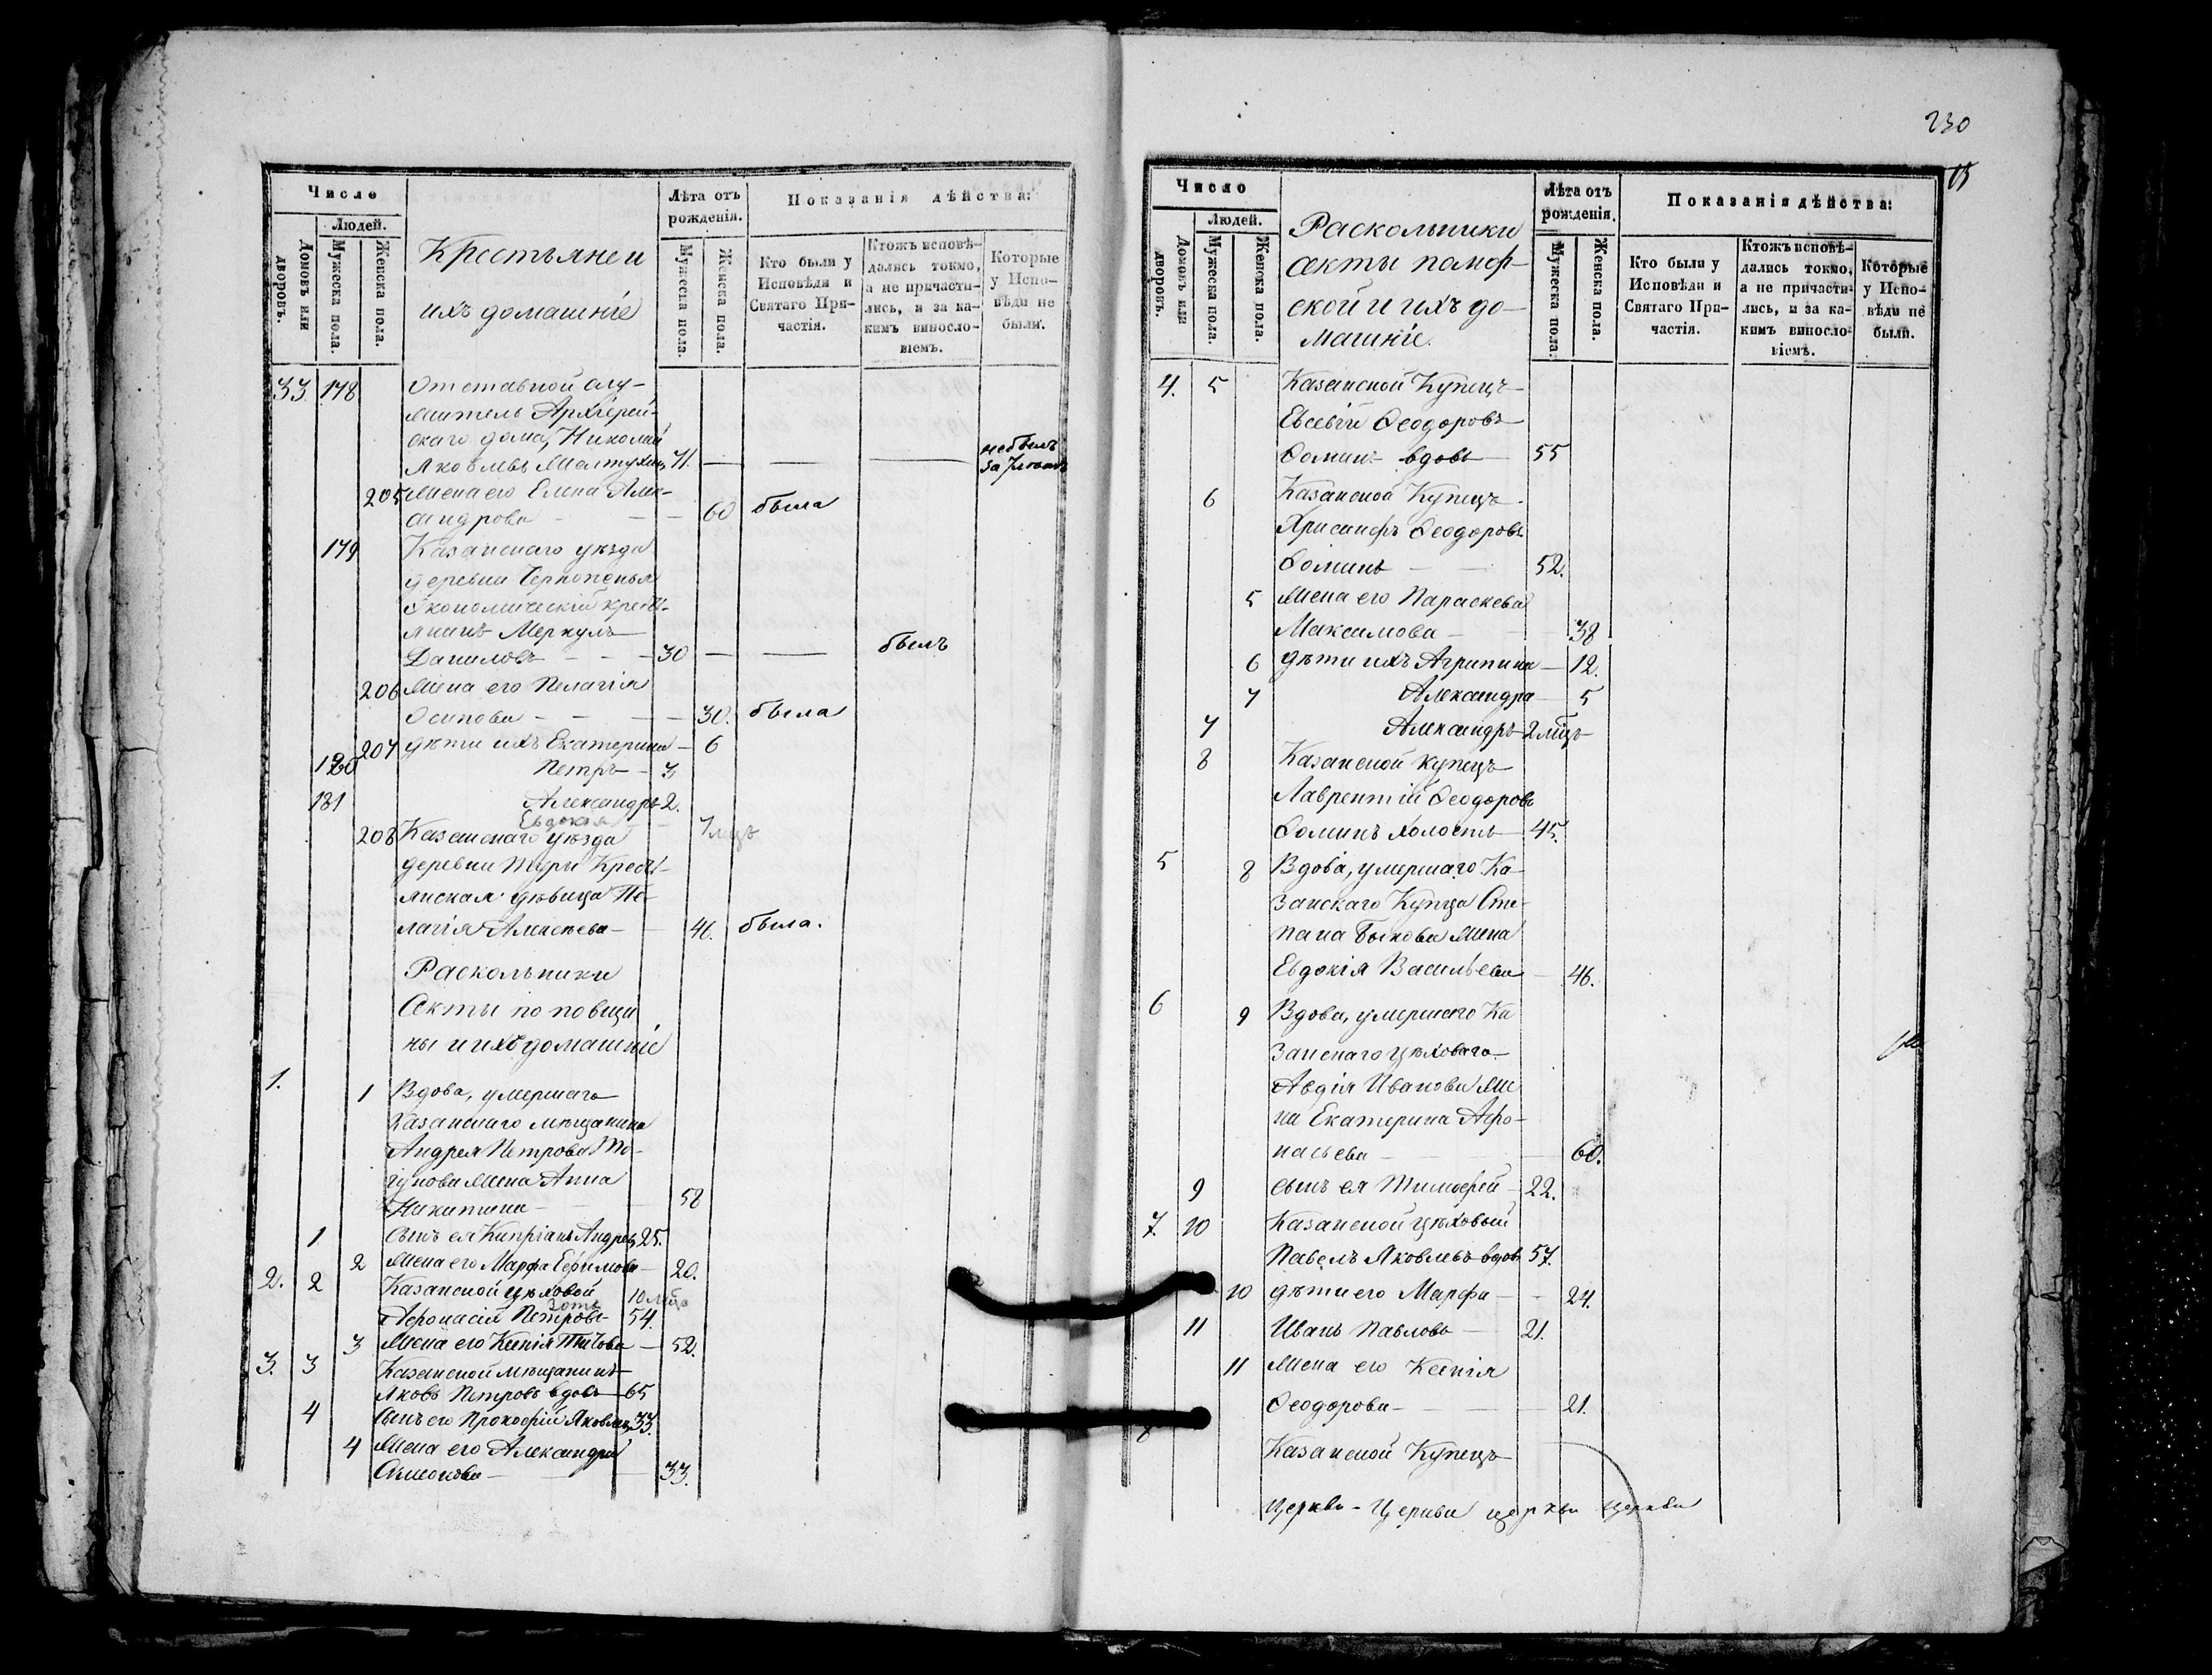 230
15
Число
Людей.
Домовъ или дворовъ.
Мужеска пола.
Женска пола.
Крестьяне и
ихъ домашніе
Лѣта отъ рожденія.
Мужеска пола.
Женска пола.
Показанія дѣйства:
Кто были у Исповѣди и Святаго Причастія.
Ктожъ исповѣдались токмо, а не причастились, и за какимъ винословіемъ.
Которые у Исповѣди не были.
33. 178 Отставной слу-
житель Архіерей-
скаго дома, Николай
Яковлевъ 71. — — — не былъ
205 Жена его Елена Алек-
сандрова — 60 была
179 Казанскаго уѣзда
деревни Чернопенья
Экономическій кресть-
янинъ Меркулъ
Даниловъ — 30 — — былъ
206 Жена его Пелагія
Осипова — 30. была
207 дѣти ихъ Екатерина — 6
180 Петръ — 3
181 Александръ 2.
Евдокія 7 мцъ
208 Казанскаго уѣзда
деревни Туры Кресть-
янская дѣвица Пе-
лагія Алексѣева — 46. была.
Раскольники
Секты поповщи
ны и ихъ домашніе
1. 1 Вдова, умершаго
Казанскаго мѣщанина
Андрея Петрова
Жена Анна
Никитина — 58
1 Сынъ ея Кипріанъ Андреевъ 25.
2 Жена его Марфа Ефимова — 20.
2. 2 Казанской цѣховой
Зотъ 10 мцъ
Афонасій Петровъ 54.
3 Жена его Ксенія Титова — 52.
3. 3 Казанской мѣщанинъ
Яковъ Петровъ вдовъ — 65
4 Сынъ его Прокофій Яковлевъ 33.
4 Жена его Александра
Симонова — 33.
Число
Людей.
Домовъ или дворовъ.
Мужеска пола.
Женска пола.
Раскольники
секты помор-
ской и ихъ до-
машніе.
Лѣта отъ рожденія.
Мужеска пола.
Женска пола.
Показанія дѣйства:
Кто были у Исповѣди и Святаго Причастія.
Ктожъ исповѣдались токмо, а не причастились, и за какимъ винословіемъ.
Которые у Исповѣди не были.
4. 5 Казанской Купецъ
Евсевій Ѳеодоровъ
Ѳоминъ вдовъ 55
6 Казанской Купецъ
Хрисанфъ Ѳеодоровъ
Ѳоминъ — 52.
5 Жена его Параскева
Максимова — 38
6 дѣти ихъ Агрипина — 12.
7 Александра — 5
7 Александръ 2 мцъ
8 Казанской купецъ
Лаврентій Ѳеодоровъ
Ѳоминъ холостъ — 45.
5 8 Вдова, умершаго Ка-
занскаго Купца Сте-
пана Быкова жена
Евдокія Васильева — 46.
6 9 Вдова, умершаго Ка
занскаго цѣховаго
Авдія Иванова же
на Екатерина Афо-
насьева — 60.
9 сынъ ея Тимофей — 22.
7. 10 Казанской цѣховый
Павелъ Яковлевъ вдовъ 57.
10 дѣти его Марфа — 24.
11 Иванъ Павловъ — 21.
11 Жена его Ксенія
Ѳеодорова — 21.
8 Казанской Купецъ
Церкви - Церкви церкви церкви